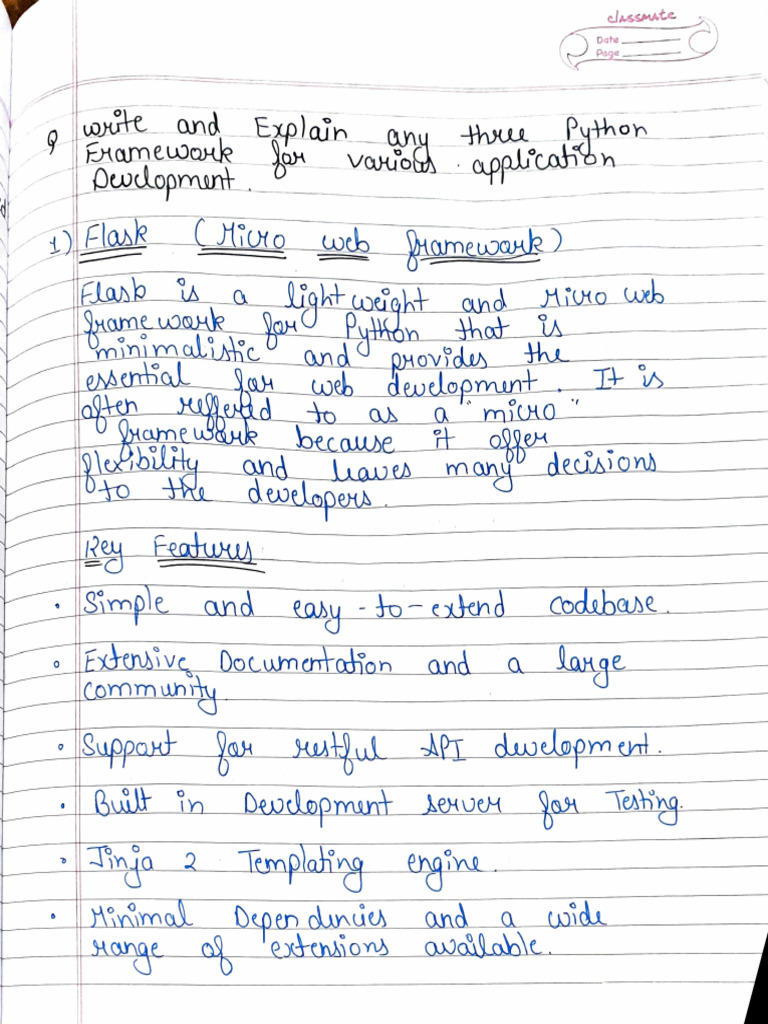 classmate
Date
Page
Q write and Explain any three Python
Framework for various application
Development.
1) Flask (Micro web framework)
Flask is a lightweight and Micro web
framework for Python that is
minimalistic and provides the
essential for web development. It is
often reffered to as a "micro"
framework because it offer
flexibility and leaves many decisions
to the developers.
Key Features
• Simple and easy-to-extend codebase.
• Extensive Documentation and a large
community.
• Support for restful API development.
• Built in Development server for Testing.
• Jinja 2 Templating engine.
• Minimal Dependencies and a wide
range of extensions available.